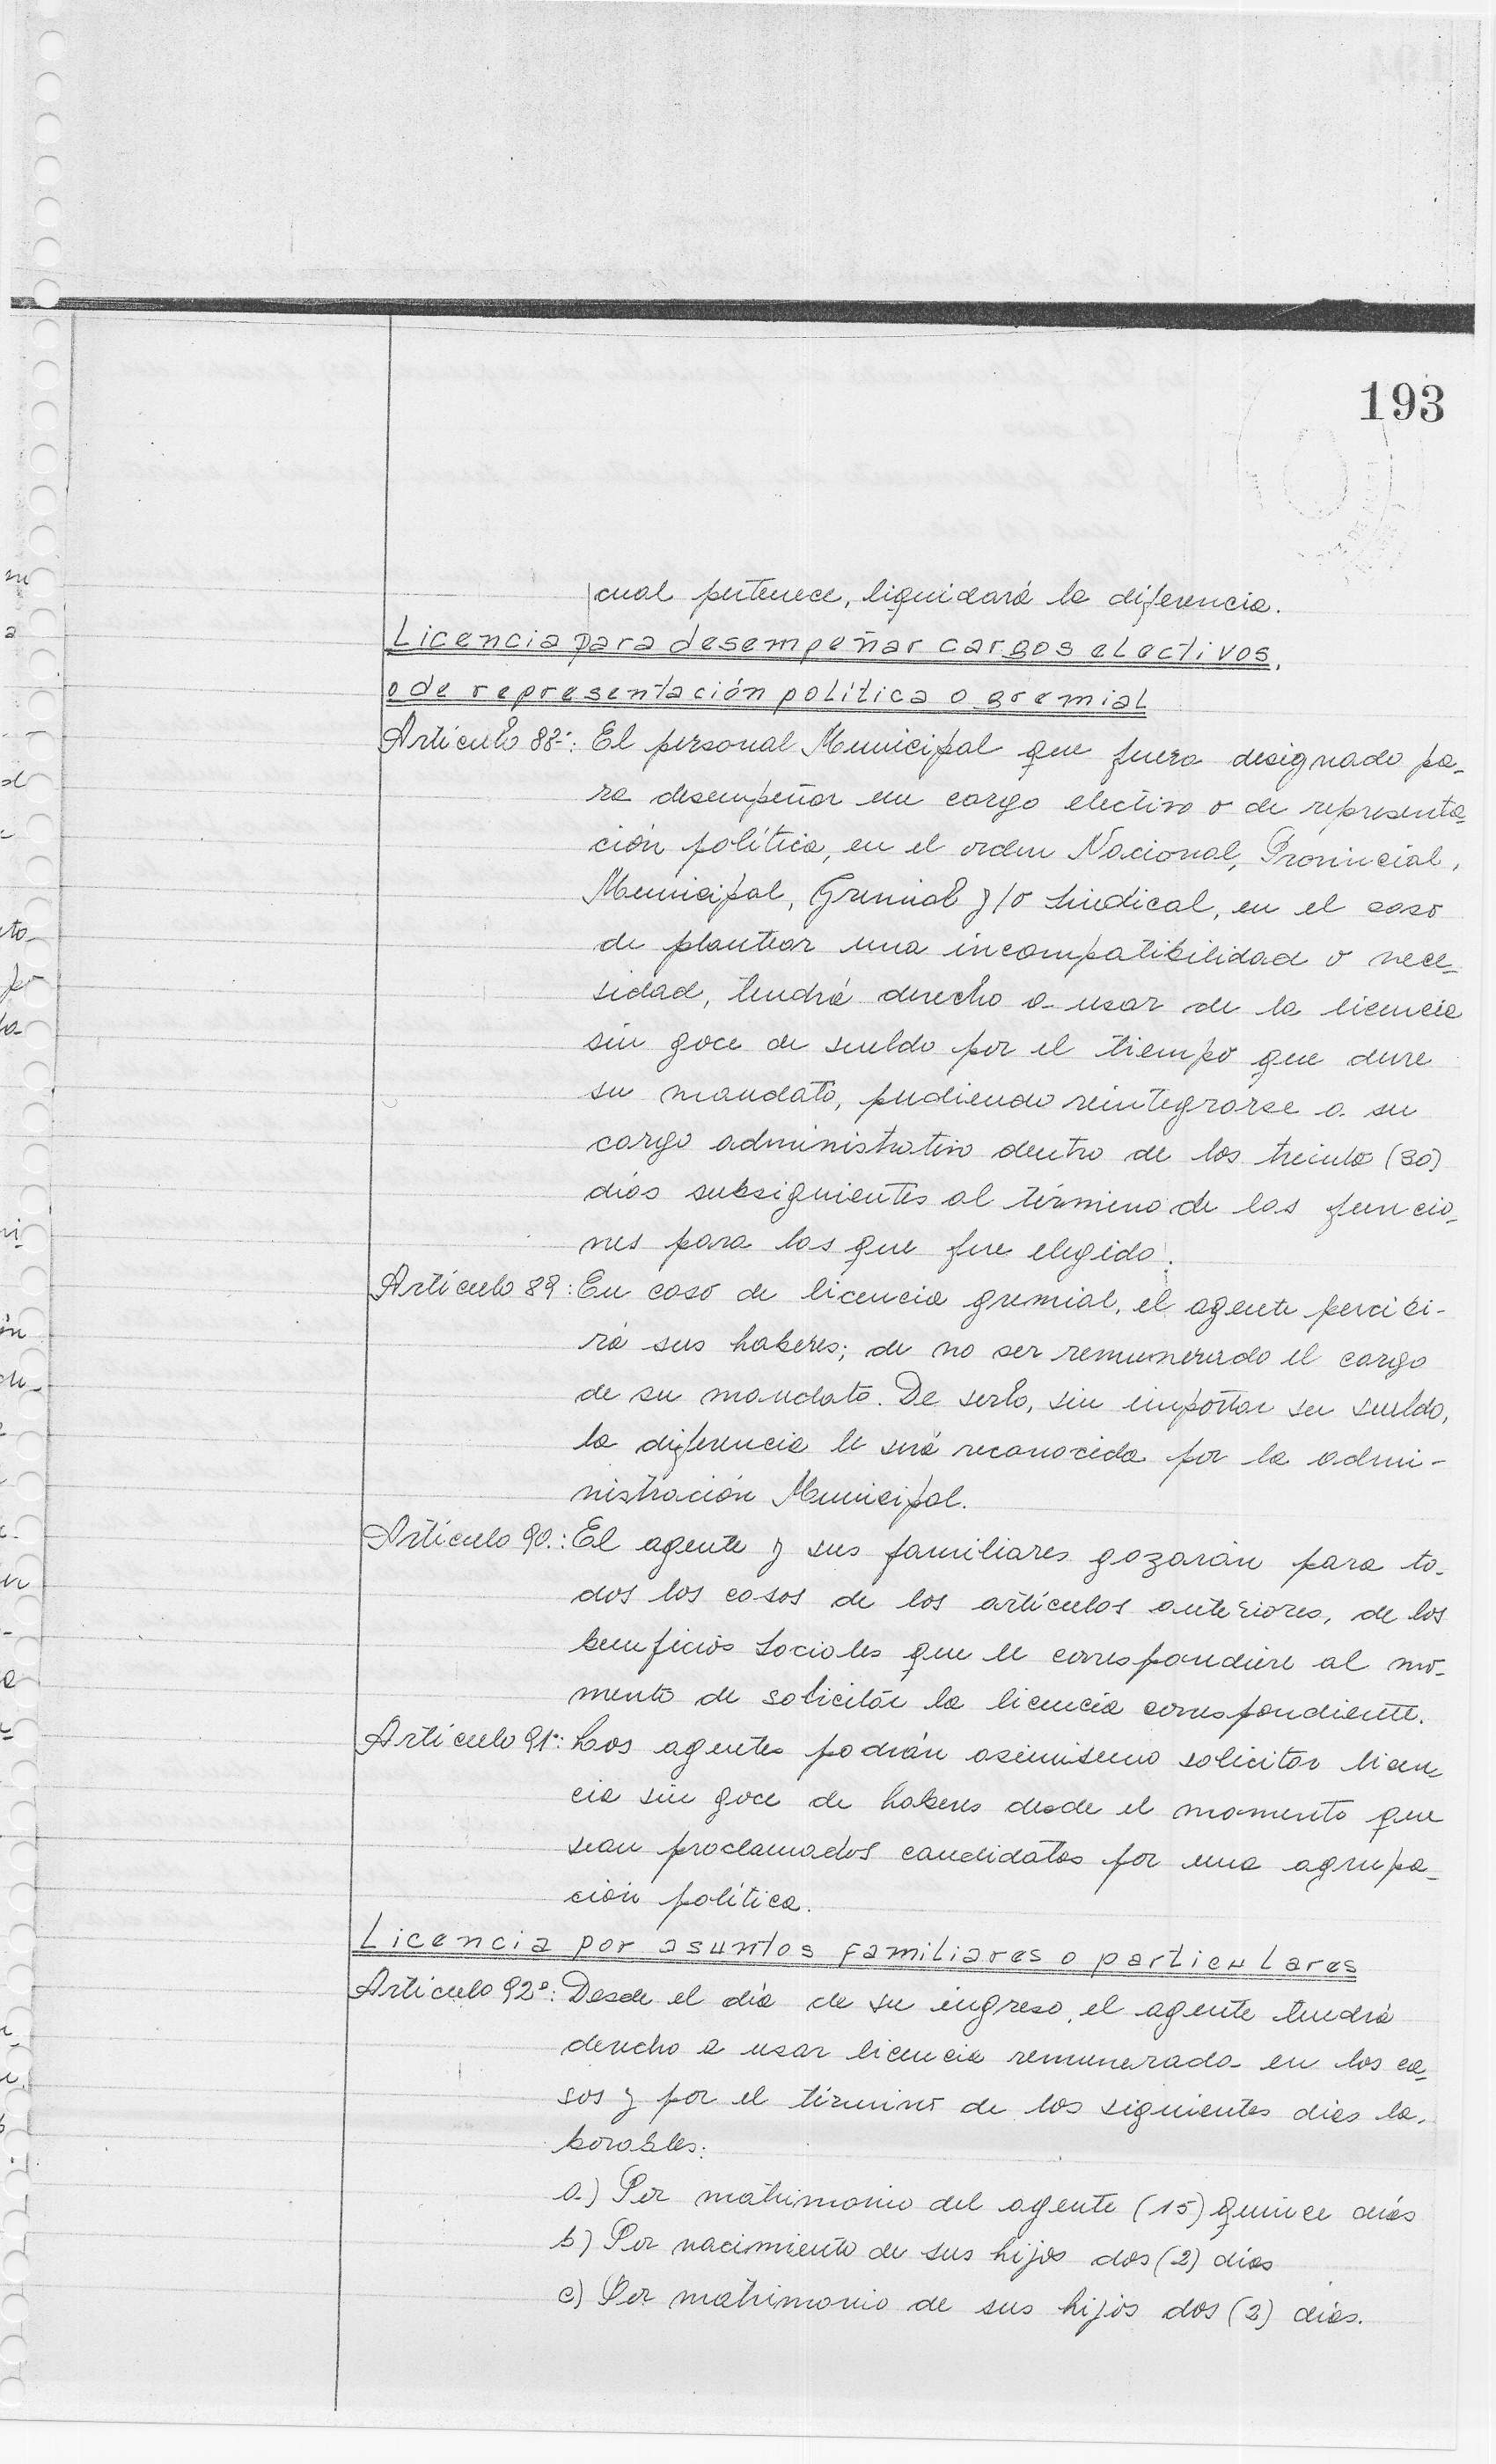 193
cual pertenece, liquidará la diferencia.
Licencia para desempeñar cargos electivos,
o de representación política o gremial
Artículo 88º: El personal Municipal que fuera designado pa-
ra desempeñar un cargo electivo o de representa-
ción política, en el orden Nacional, Provincial,
Municipal, Gremial y/o Sindical, en el caso
de plantear una incompatibilidad o nece-
sidad, tendrá derecho a usar de la licencia
sin goce de sueldo por el tiempo que dure
su mandato, pudiendo reintegrarse a su
cargo administrativo dentro de los treinta (30)
días subsiguientes al término de las funcio-
nes para las que fue elegido.
Artículo 89: En caso de licencia gremial, el agente percibi-
rá sus haberes; de no ser remunerado el cargo
de su mandato. De serlo, sin importar su sueldo,
la diferencia le será reconocida por la admi-
nistración Municipal.
Artículo 90.: El agente y sus familiares gozarán para to-
dos los casos de los artículos anteriores, de los
beneficios sociales que le correspondiere al mo-
mento de solicitar la licencia correspondiente.
Artículo 91º: Los agentes podrán asimismo solicitar licen
cia sin goce de haberes desde el momento que
sean proclamados candidatos por una agrupa-
ción política.
Licencia por asuntos familiares o particulares
Artículo 92º: Desde el día de su ingreso, el agente tendrá
derecho a usar licencia remunerada en los ca-
sos y por el término de los siguientes días la-
borables:
a) Por matrimonio del agente (15) quince días
b) Por nacimiento de sus hijos dos (2) días
c) Por matrimonio de sus hijos dos (2) días.